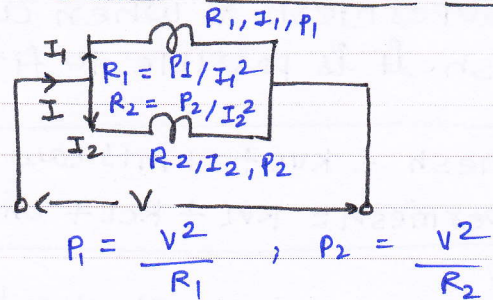 R₁, I₁, P₁
I₁
R₁ = P₁/I₁²
I
R₂ = P₂/I₂²
I₂
R₂, I₂, P₂
V
P₁ = V²/R₁ , P₂ = V²/R₂